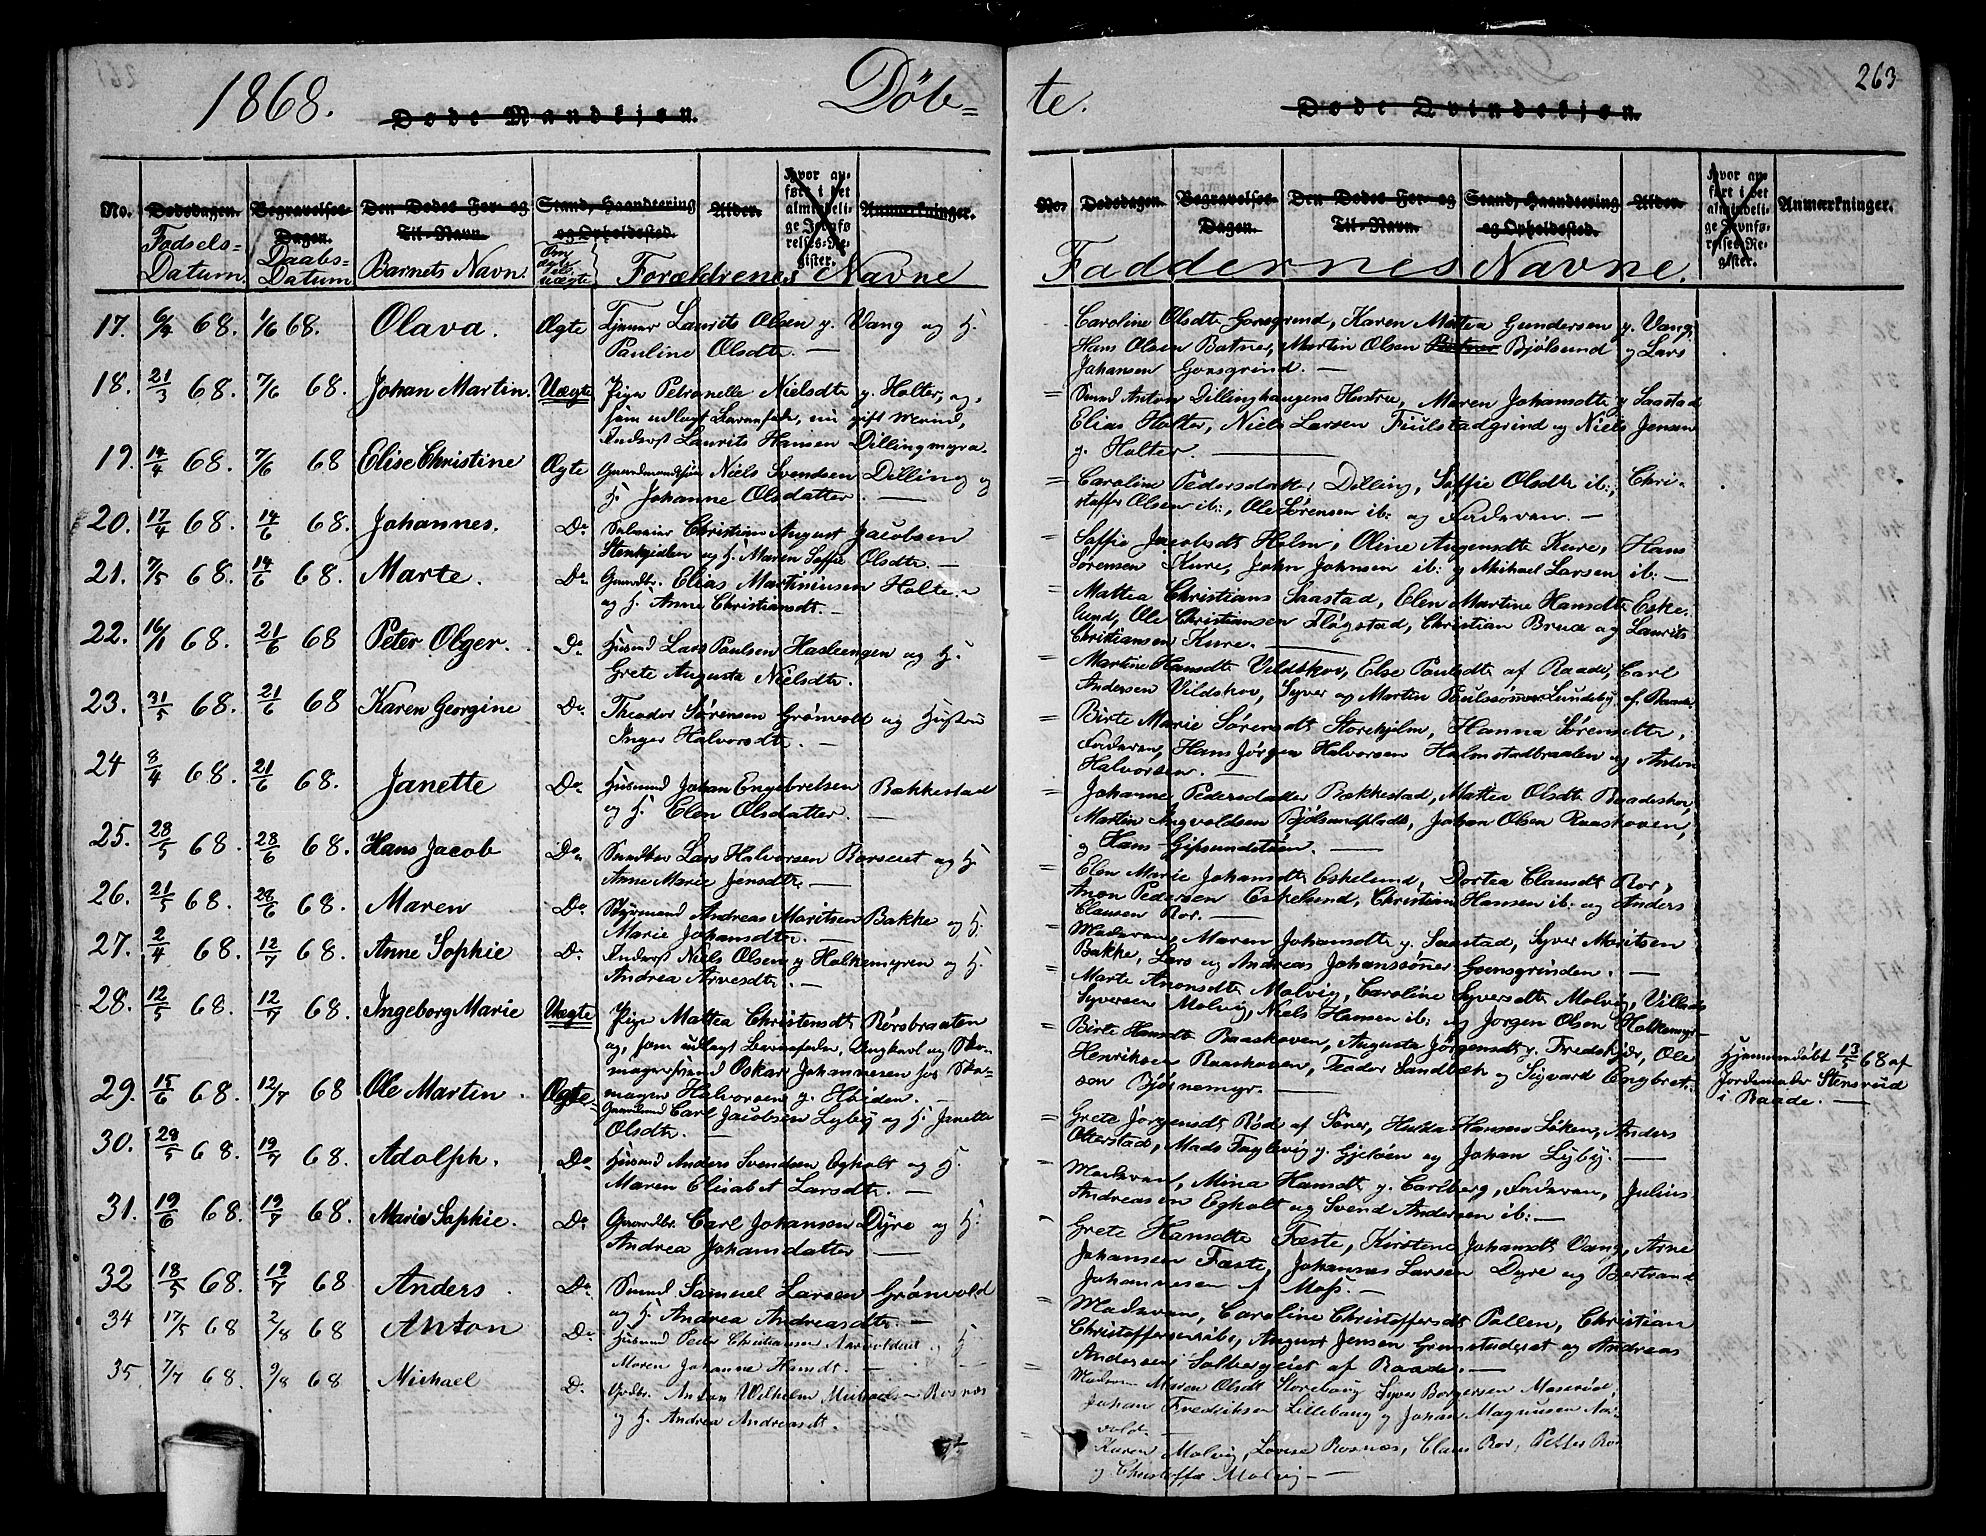 1868.
Døbte.
263
Døde Mandkjøn.
Døde Qvindekjøn.
No. Dødsdagen. Begravelses-Dagen. Den Dødes For- og Til-Navn. Stand, Haandtering og Opholdssted. Alder. Hvor anføre i det almindelige Jevnførelses-Register. Anmærkninger.
Fødsels-Datum. Daabs-Datum Barnets Navn. Om ægte el. uægte Forældrenes Navne
No. Dødsdagen. Begravelses-Dagen. Den Dødes For- og Til-Navn. Stand, Haandtering og Opholdssted. Alder. Hvor anført i det almindelige Jevnførelses-Register. Anmærkninger.
Faddernes Navne.
17. 6/4 68. 1/6 68. Olava. Ægte Tjener Laurits Olsen y. Vang og H.
Pauline Olsdtr. —
18. 21/3 68. 7/6 68. Johan Martin. Uægte Pige Petronelle Nielsdtr y. Holter, og,
som udlagt Barnefader, nu gift Mand,
Inderst Laurits Hansen Dillingmyra.
19. 14/4 68. 7/6 68 Elise Christine Ægte Gaardmandssøn Niels Svendsen Dilling og
H. Johanne Olsdatter. —
20. 17/4 68. 14/6 68. Johannes. Do. Christian August Jacobsen
og H. Maren Soffie Olsdtr. —
21. 7/5 68. 14/6 68. Marte. Do. Gaardbr. Elias Martiniusen Holter
og H. Anne Christiansdtr. —
22. 68. 21/6 68 Peter Olger. Do. Husmd Lars Paulsen Hasleengen og H.
Grete Augusta Nielsdtr.
23. 31/5 68. 21/6 68 Karen Georgine Do. Theodor Sørensen Grønvold og Hustru
Inger Halvorsdtr. —
24 8/4 68. 21/6 68. Janette Do. Husmd Johan Engebretsen Bækkestad
og H. Elen Olsdatter. —
25. 28/5 68. 28/6 68. Hans Jacob Do. Lars Halvorsen Barseiet og H.
Anne Marie Jensdtr. —
26. 21/5 68. 28/6 68. Maren Do. Styrmand Andreas Maritsen Bakke og H.
Marie Johansdtr. —
27. 2/4 68. 12/7 68. Anne Sophie Do. Inderst Niels Olsen y. Holkemyren og H.
Andrea Arvesdtr. —
28. 12/5 68. 12/7 68. Ingeborg Marie Uægte Pige Mattea Christensdtr Rørsbraaten
og, som udlagt Barnefader, Ungkarl og Sko-
magersvend Oskar Johannesen hos Sko-
mager Halvorsen y. Høiden. —
29. 15/6 68. 12/7 68 Ole Martin. Ægte. Gaardmd Carl Jacobsen Lyby og H. Janette
Olsdtr. —
30. 28/5 68. 19/7 68. Adolph. Do Husmd Anders Svendsen Egholt og H.
Maren Elisabet Larsdtr. —
31. 19/6 68. 19/7 68. Marie Sophie. Do. Gaardbr. Carl Johansen Dyre og H.
Andrea Johansdatter —
32 18/5 68. 19/7 68 Anders Do. Samuel Larsen Grønvold
og H. Andrea Andreasdtr. —
34 17/5 68 2/8 68 Anton Do. Husmd Peter Christiansen og H
Maren Johanne Hansdt. —
35 7/7 68. 9/8 68 Michael D. Grdbr. Anton Wilhelm Rosnæs
og H. Andrea Andreasdt.
Caroline Olsdtr Gonsgrind, Karen Mattea Gundersen y. Vang,
Hans Olsen Botner, Martin Olsen Botner Bjølsund og Lars
Johansen Gonsgrind. —
= Anton Dillinghaugens Hustru, Maren Johansdtr y Saastad
Elias Holter, Niels Larsen Fiulstadgrind og Niels Jensen
y. Holter. —
= Caroline Pedersdatter Dilling, Soffie Olsdtr ib:, Chri-
stoffer Olsen ib:, Ole Sørensen ib: og Faderen. —
= Soffie Jacobsdtr Holm, Oline Augensdtr Kure, Hans
Sørensen Kure, John Johnsen ib: og Michael Larsen ib: —
= Mattea Christians Saastad, Elen Martine Hansdtr Eske-
lund, Ole Christiansen Fløgstad, Christian Brue og Laurits
Christiansen Kure. —
= Martine Hansdtr Vildskov, Else Paulsdtr af Raade, Carl
Andersen Vildskov, Syver og Martin Paulssønner Lundeby af Raade
= Birte Marie Sørensdtr Storehjelm, Hanna Sørensdtr,
Faderen, Hans Jørgen Halvorsen Holmstadbraaten og Anton
Halvorsen. —
= Johanne Pedersdatter Bækkestad, Mattea Olsdtr Raadeskov,
Martin Ingvoldsen Bjølsundplads, Johan Olsen Raaskoven,
y Hans —
= Elen Marie Johansdtr Eskelund, Dortea Clausdtr Ror,
Anon Pedersen Eskelund, Christian Hansen ib: og Anders
Clausen Ror. —
= Moderen, Maren Johansdtr y. Saastad, Syver Maritsen
Bakke, Lars og Andreas Johanssønner Gonsgrinden. —
= Marte Anonsdtr Molvig, Caroline Syversdtr Molvig, Villads
Syversen Molvig, Niels Hansen ib: og Jørgen Olsen Holkemyr —
= Birte Hansdtr Raaskoven, Augusta Jørgensdtr y. Fredskjær, Ole
Henriksen Raaskoven, Teodor Sandbæk og Sigvard Engbret-
sen Bjørnemyr. —
Hjemmedøbt 13/5 68 af
Jordemoder Stensrud
i Raade. —
= Grete Jørgensdtr Rød af Soner, Hulda Hansen Løken, Anders
Oterstad, Mads Fuglevig y. Gjeløen og Johan Lyby. —
= Moderen, Mina Hansdtr y. Carlberg, Faderen, Julius
Andreasen Egholt og Svend Andersen ib: —
Grete Hansdtr Fæste, Kirstene Johansdtr Vang, Arne
Johansen Fæste, Johannes Larsen Dyre og Bertrand
Johannesen af Moss. —
= Moderen, Caroline Christoffersdtr Pallen, Christian
Christoffersen ib:, August Jensen Grimstaderet og Andreas
Andersen Solbergeiet af Raade. —
= Moderen Maren Olsdt Storebaug Syver Borgersen Moserød,
Johan Fredriksen Lillebaug y Johan Magnusen
vold. —
Karen Molvig, Lovise Rosnæs, Claus Ror, Petter Ror
y Christoffer Molvig —